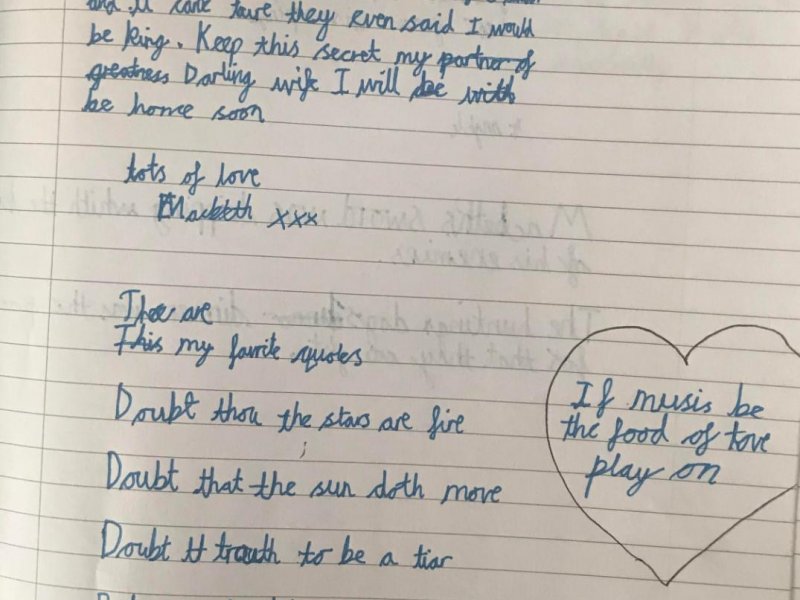 and it came true they even said I would
be king. Keep this secret my partner of
greatness Darling wife I will be with
be home soon
lots of love
Macbeth xxx
Thee are
This my favrite quotes
Doubt thou the stars are fire
Doubt that the sun doth move
Doubt truth to be a liar
If musis be
the food of love
play on